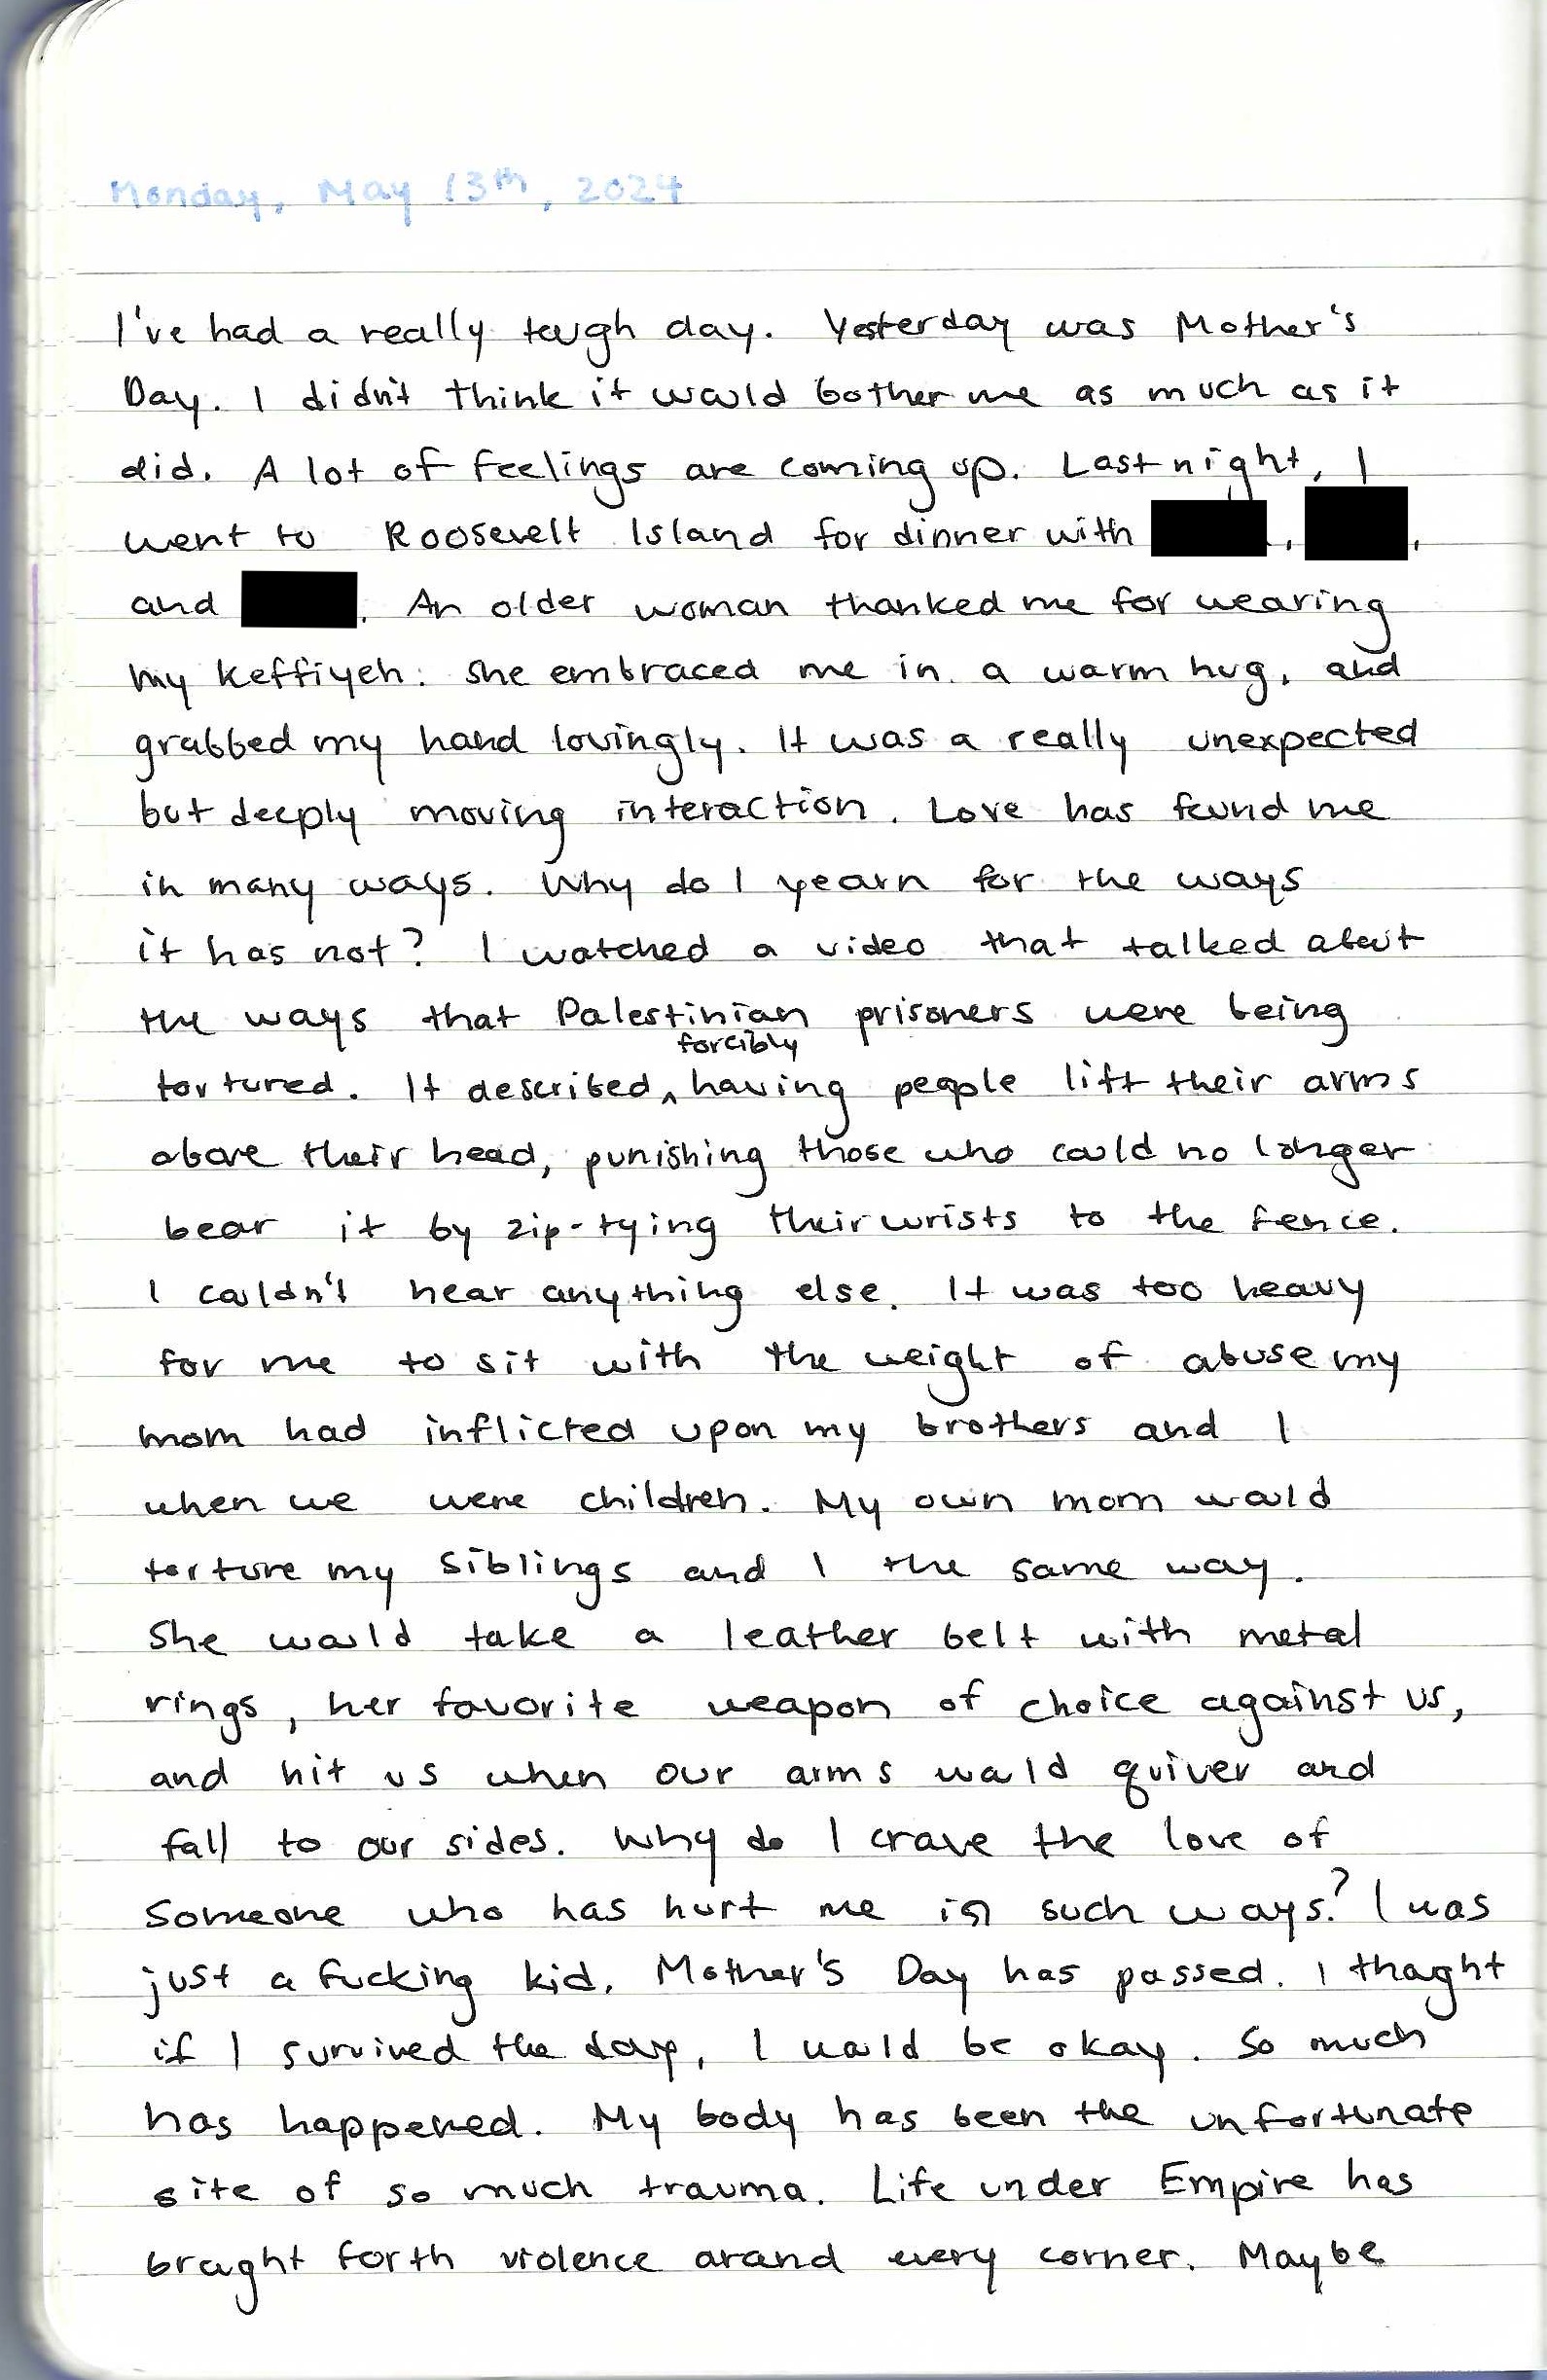 Monday, May 13th, 2024
I've had a really tough day. Yesterday was Mother's
Day. I didn't think it would bother me as much as it
did. A lot of feelings are coming up. Last night, I
went to Roosevelt Island for dinner with , ,
and . An older woman thanked me for wearing
my keffiyeh: she embraced me in a warm hug, and
grabbed my hand lovingly. It was a really unexpected
but deeply moving interaction. Love has found me
in many ways. Why do I yearn for the ways
it has not? I watched a video that talked about
the ways that Palestinian prisoners were being
forcibly
tortured. It described ^ having people lift their arms
above their head, punishing those who could no longer
bear it by zip-tying their wrists to the fence.
I couldn't hear anything else. It was too heavy
for me to sit with the weight of abuse my
mom had inflicted upon my brothers and I
when we were children. My own mom would
torture my siblings and I the same way.
She would take a leather belt with metal
rings, her favorite weapon of choice against us,
and hit us when our arms would quiver and
fall to our sides. Why do I crave the love of
someone who has hurt me in such ways? I was
just a fucking kid. Mother's Day has passed. I thought
if I survived the day, I would be okay. So much
has happened. My body has been the unfortunate
site of so much trauma. Life under Empire has
brought forth violence around every corner. Maybe